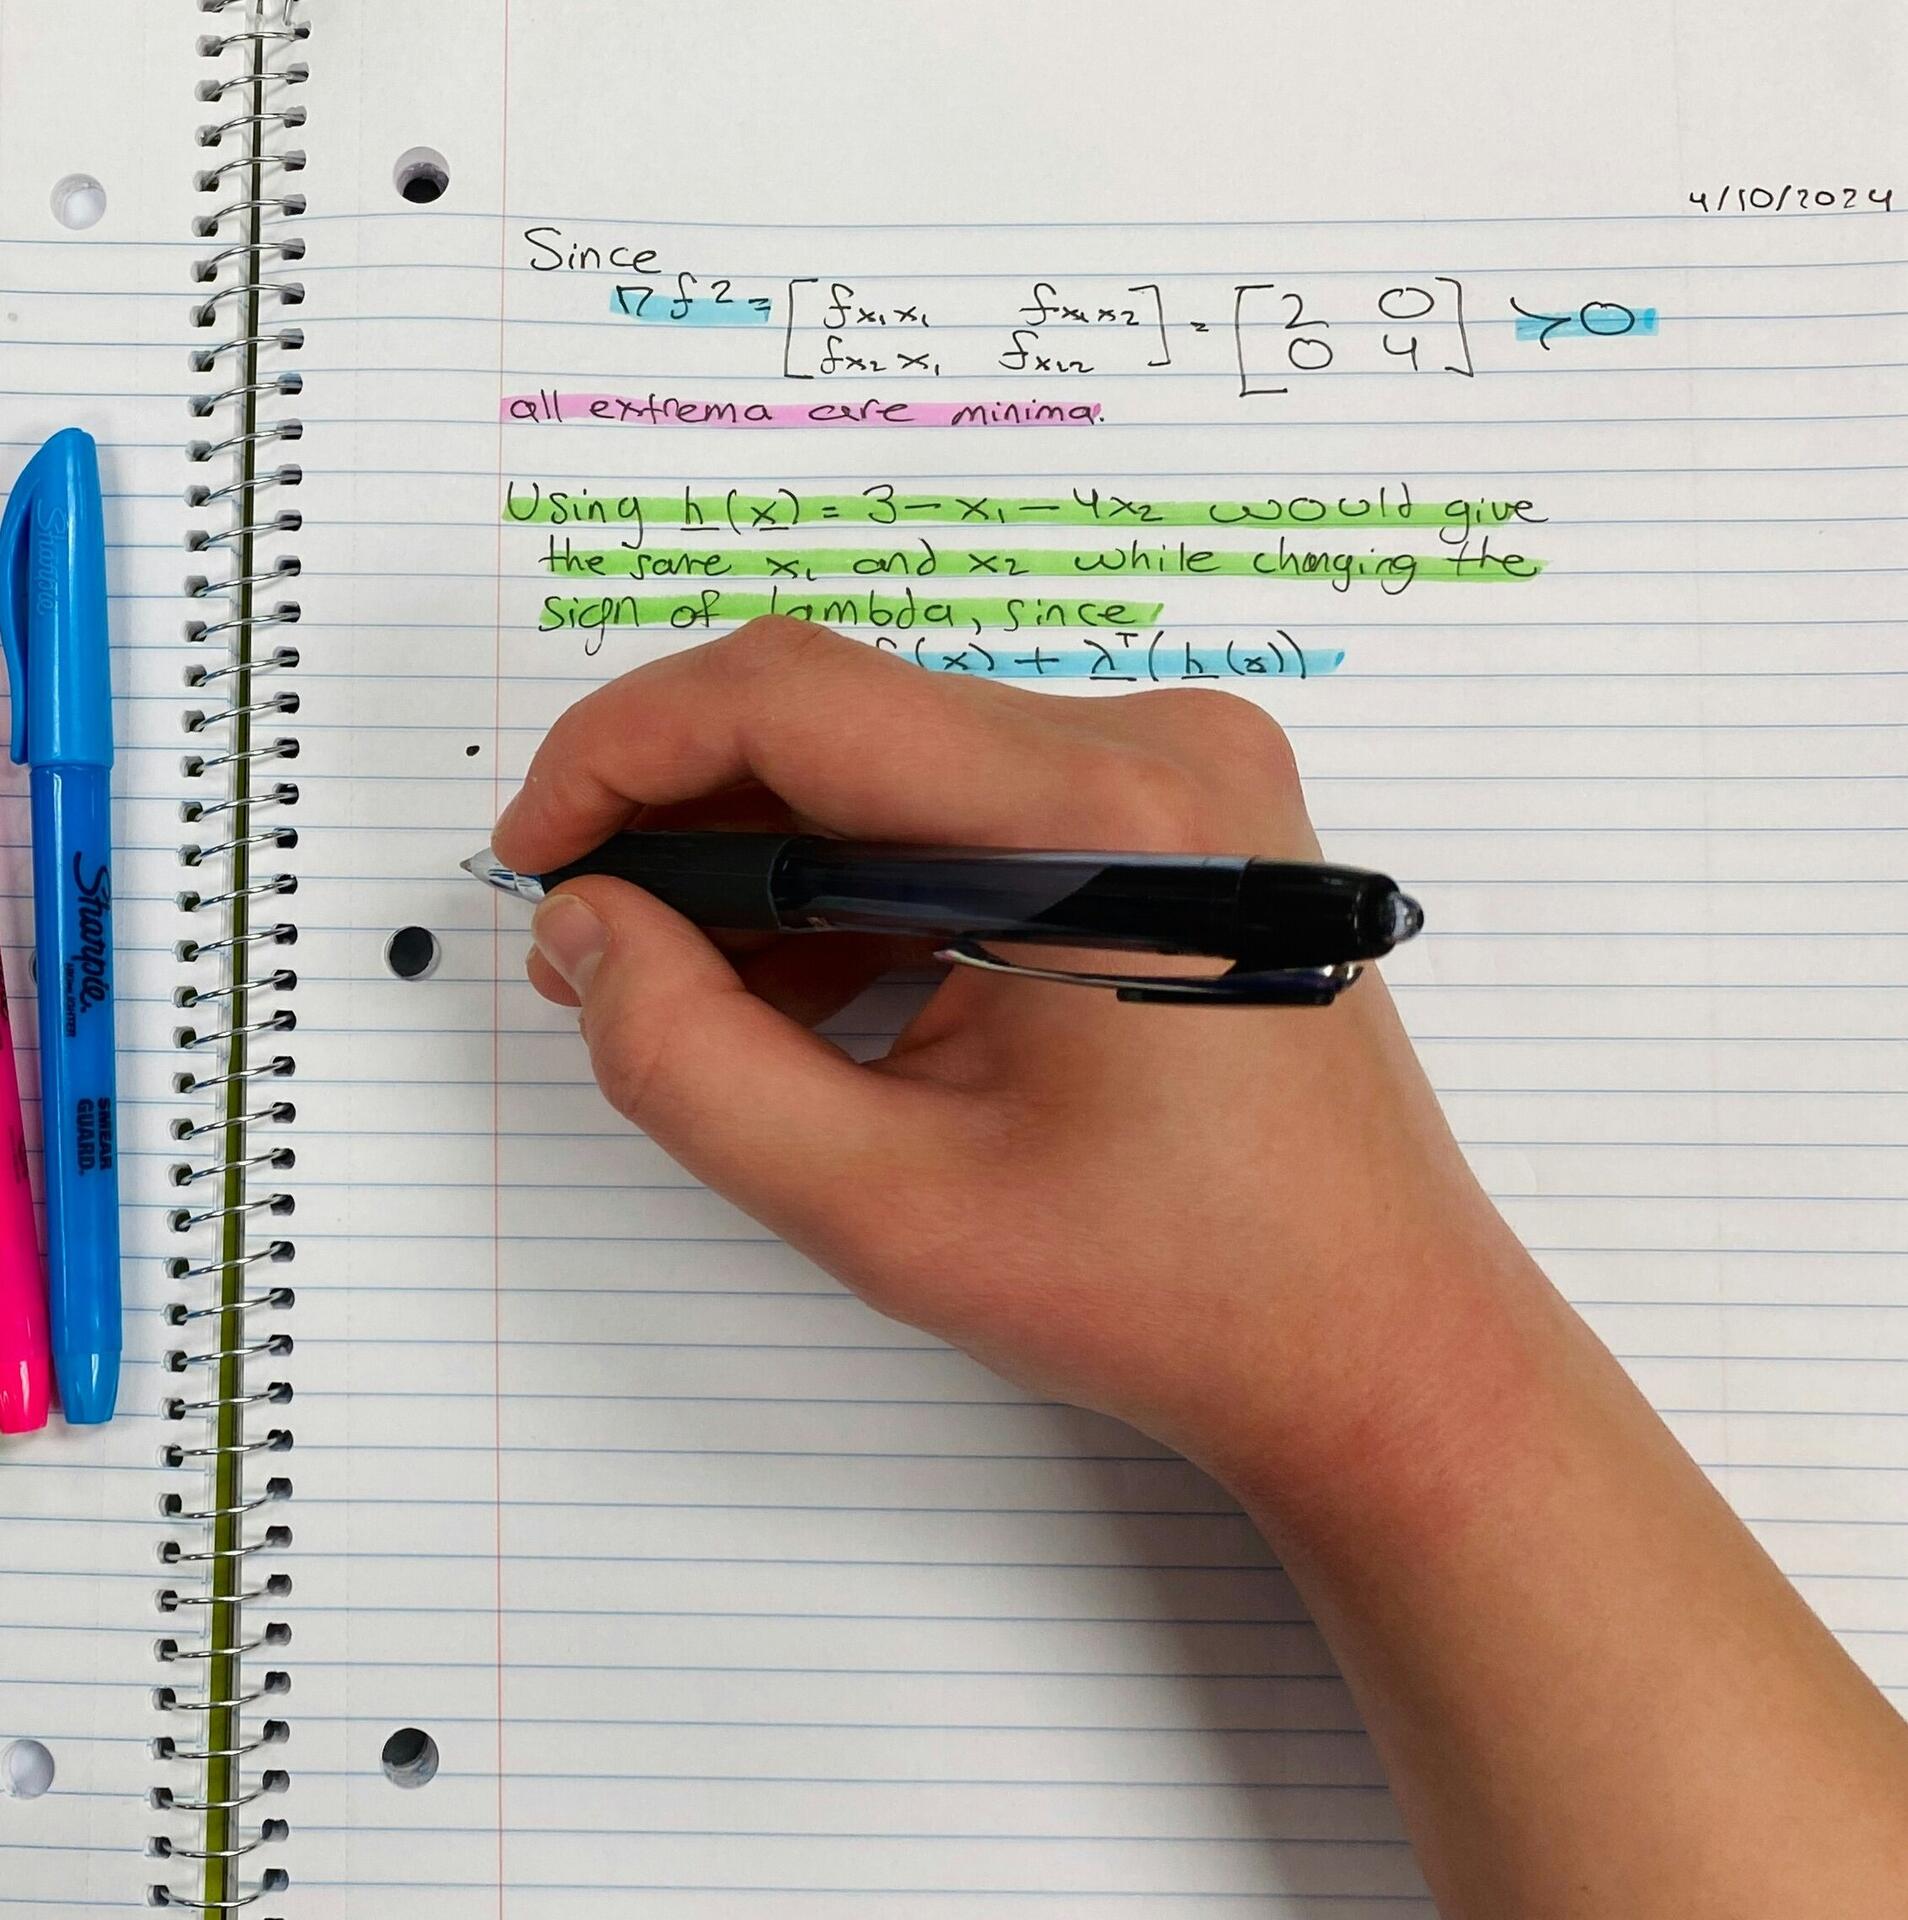 4/10/2024
Since
∇f2 = [ fx₁x₁ fx₁x2 ] = [ 2 0 ] ≻0
[ fx2x₁ fx₂2 ] [ 0 4 ]
all extrema are minima.
Using h(x) = 3-x₁-4x2 would give
the same x₁ and x2 while changing the
sign of lambda, since
(x) + λᵀ(h(x))
Sharpie
Sharpie.
SMEAR
GUARD.